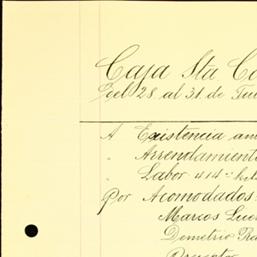 Caja Sta Co
Del 28 al 31 de
A Existencia an
" Arrendamient
" Labor 414
Por Acomodados
Marcos Luc
Demetrio